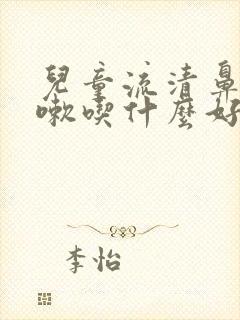 兒童流清鼻
嗽喫什麼好
李怡